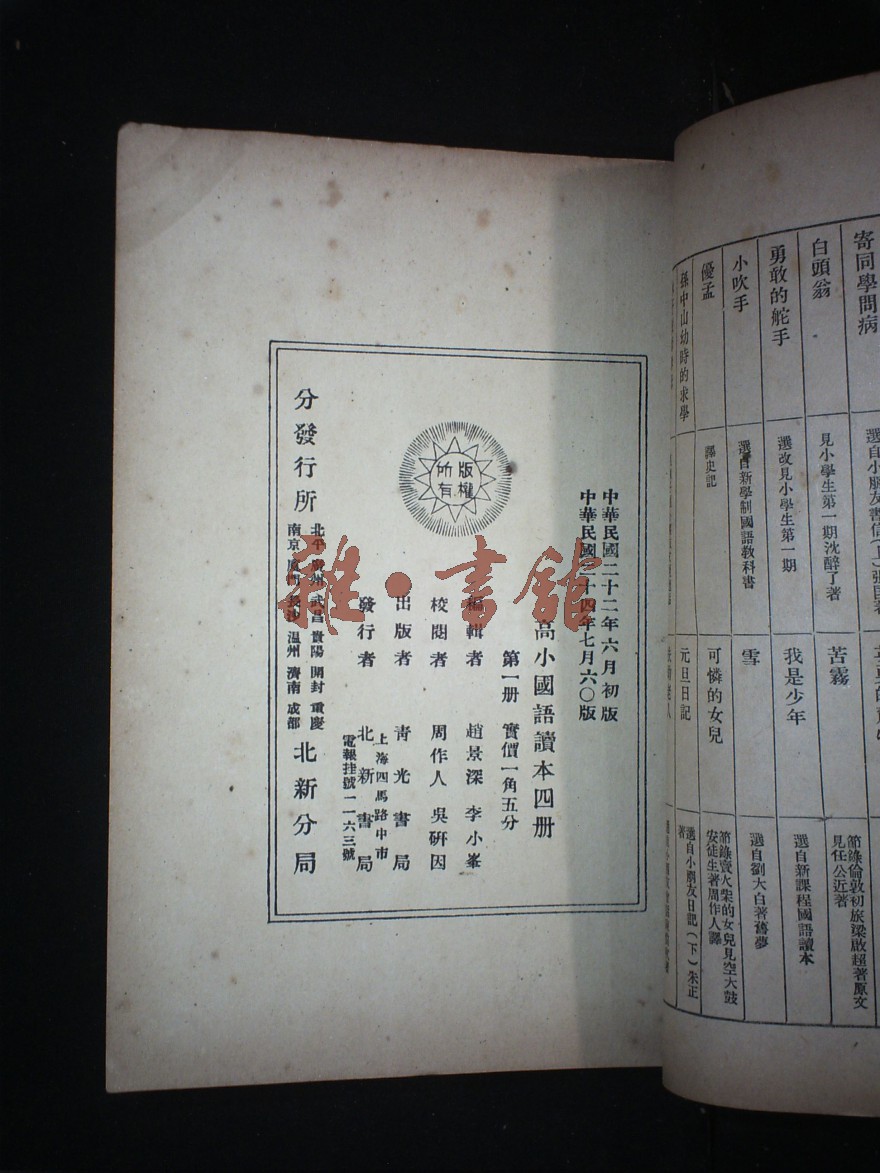 寄同學問病
選自小朋友書信(上)
白頭翁
見小學生第一期沈醉了著
苦霧
節錄倫敦初旅梁啟超著原文
見任公近著
勇敢的舵手
選改見小學生第一期
我是少年
選自新課程國語讀本
小吹手
選自新學制國語教科書
雪
選自劉大白著舊夢
優孟
譯史記
可憐的女兒
節錄賣火柴的女兒見空大鼓
安徒生著周作人譯
孫中山幼時的求學
元旦日記
選自小朋友日記(下)朱正
著
中華民國二十二年六月初版
中華民國二十四年七月六〇版
高小國語讀本四册
第一册 實價一角五分
編輯者 趙景深 李小峯
校閱者 周作人 吳研因
出版者 青光書局
上海四馬路中市
發行者 北新書局
電報挂號一一六三號
分發行所
北平 廣州 武昌 貴陽 開封 重慶
南京 廈門 長沙 溫州 濟南 成都
北新分局
版權
所有
雜·書館